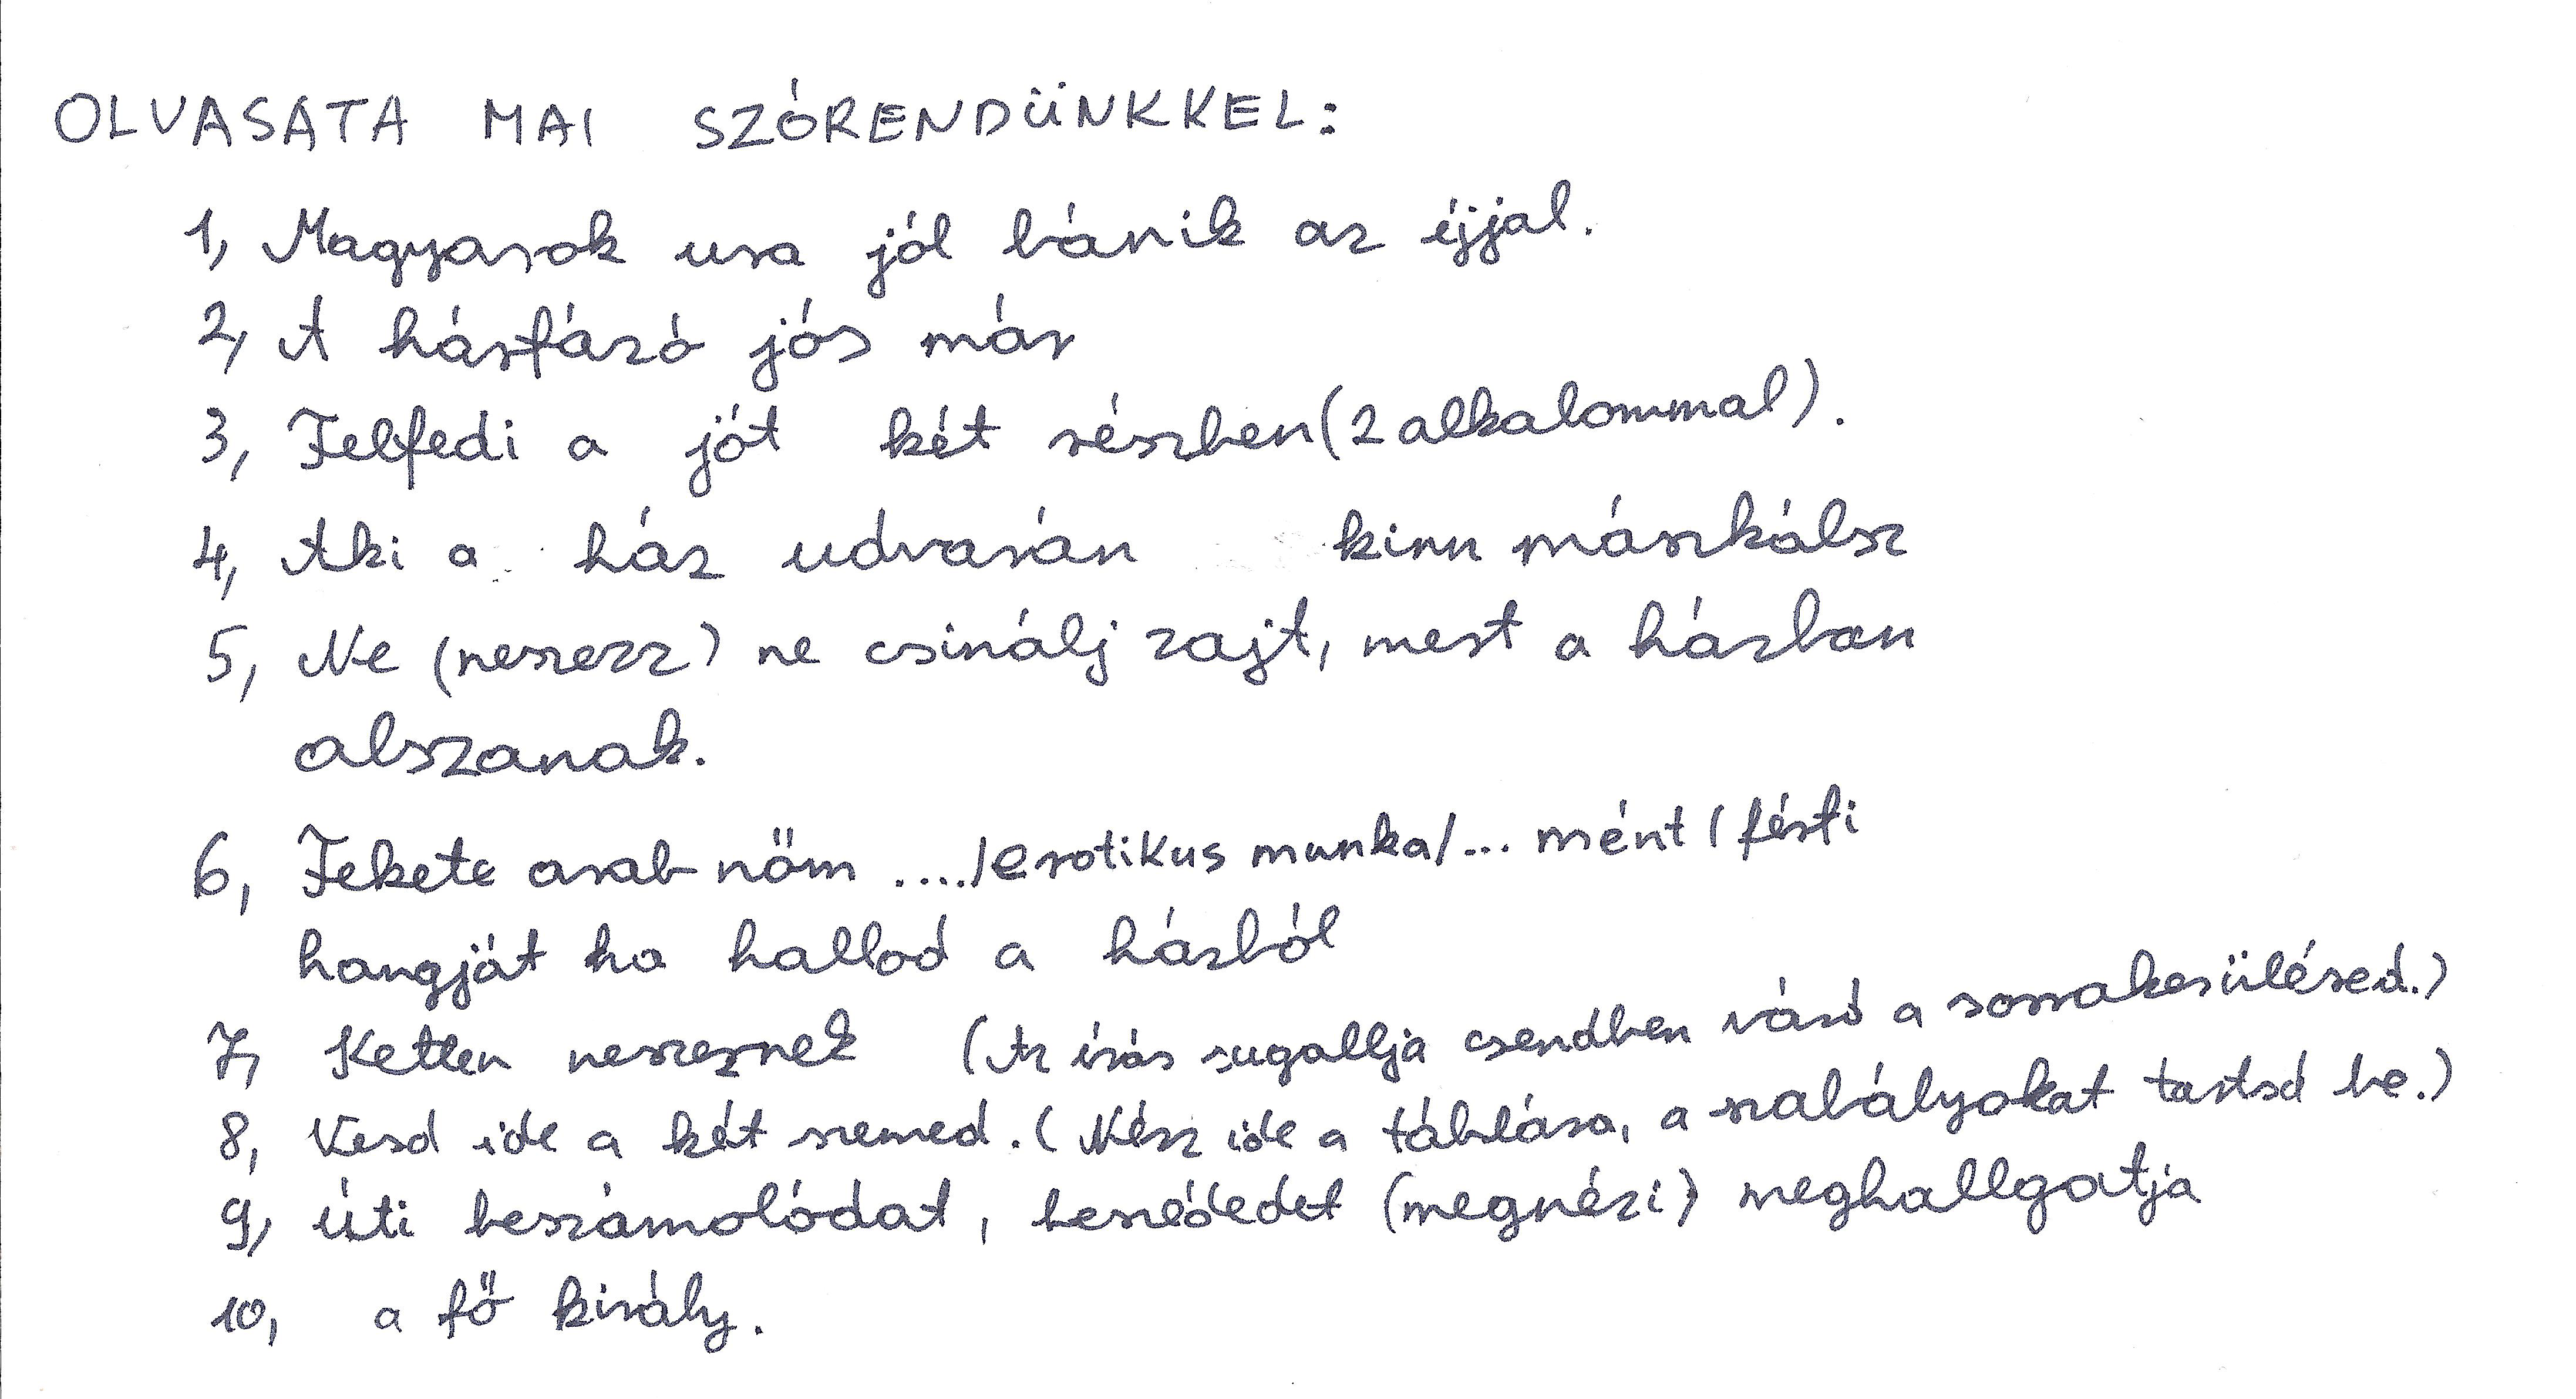 OLVASATA MAI SZÓRENDÜNKKEL:
1, Magyarok ura jól bánik az éjjal.
2, A hárfázó jós már
3, Felfedi a jót két részben (2 alkalommal).
4, Aki a ház udvarán kinn mászkálsz
5, Ne (neszezz) ne csinálj zajt, mert a házban
alszanak.
6, Fekete arab nőm ..../erotikus munka/... mént / férfi
hangját ha hallod a házból
7, Ketten neszeznek (Az írás sugallja csendben várd a sorrakerülésed.)
8, Vesd ide a két szemed. (Nézz ide a táblára, a szabályokat tartsd be.)
9, Úti beszámolódat, beszédedet (megnézi) meghallgatja
10, a fő király.